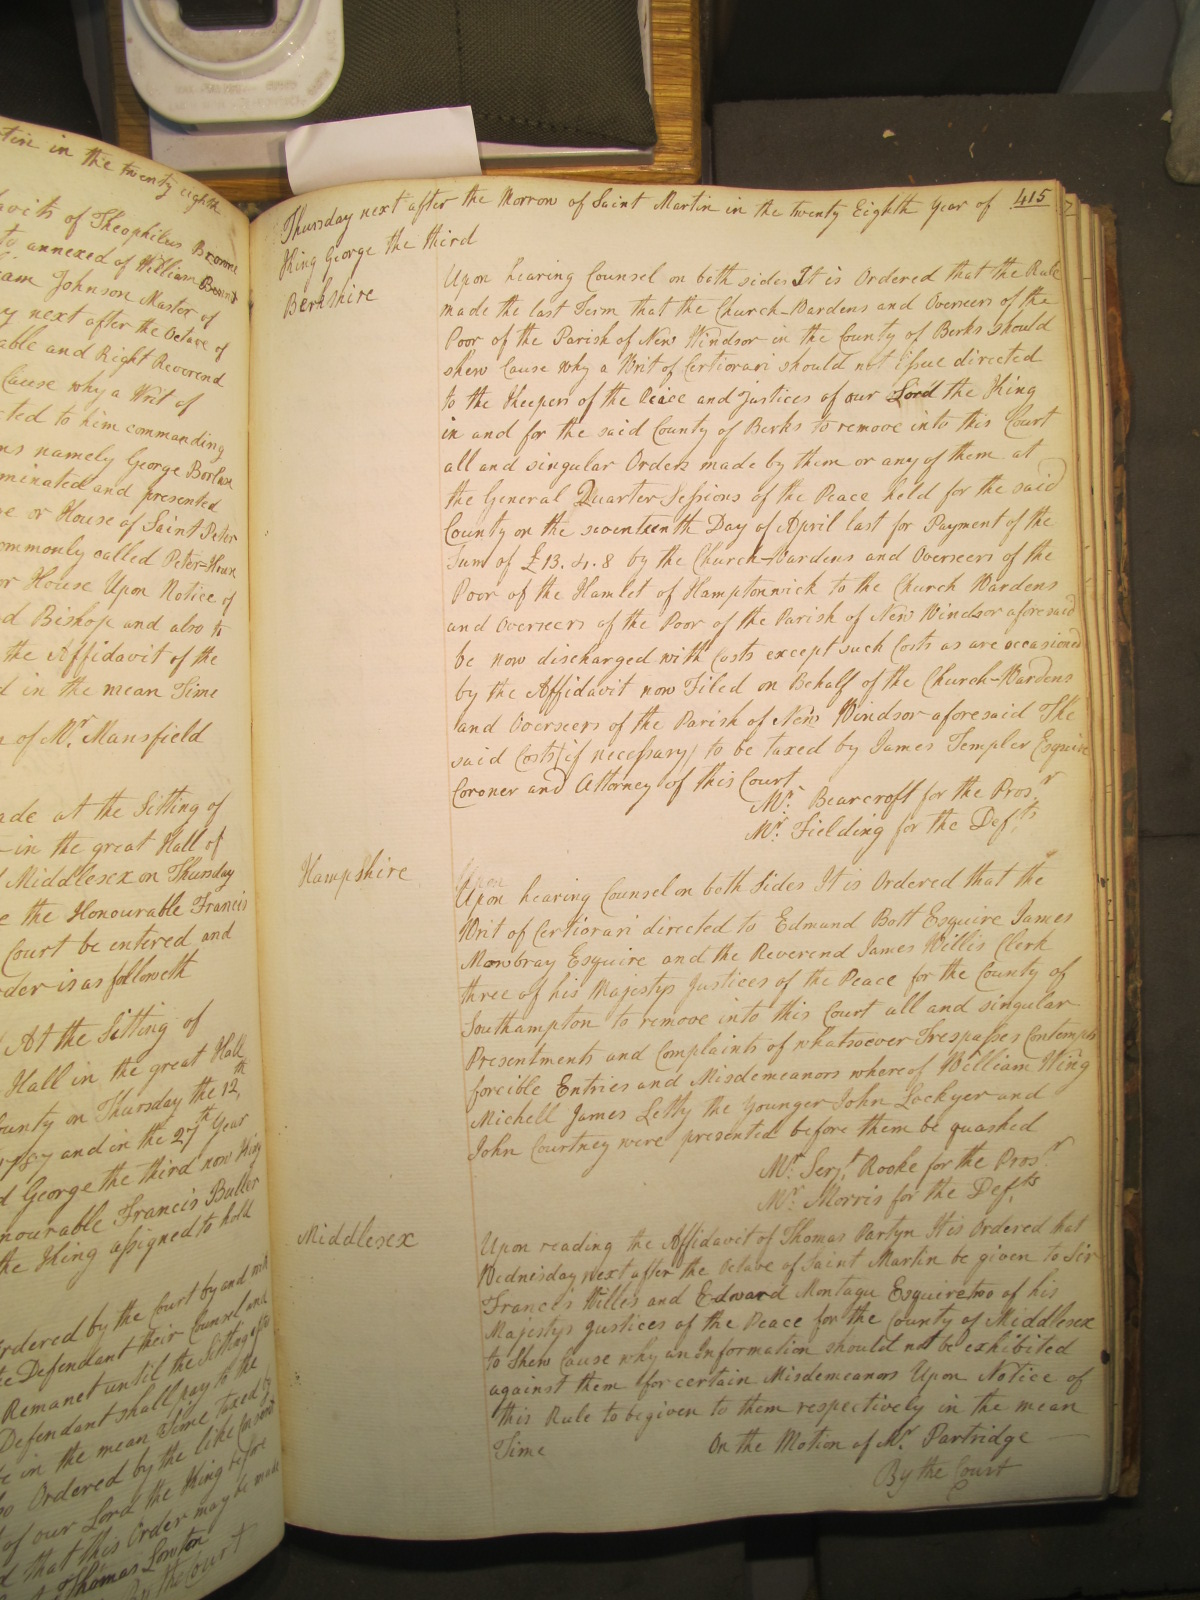 tin in the twenty eighth
avits of Theophilus Browne
to annexed of William
iam Johnson Master of
y next after the Octave of
able and Right Reverend
Cause why a Writ of
cted to him commanding
ns namely George Borlase
minated and presented
e or House of Saint Peter
ommonly called Peter-House
or House Upon Notice of
d Bishop and also to
the Affidavit of the
d in the mean Time
n of Mr. Mansfield
ade at the Sitting of
in the great Hall of
Middlesex on Thursday
e the Honourable Francis
Court be entered and
rder is as followeth
At the Sitting of
Hall in the great Hall
ounty on Thursday the 12th
1787 and in the 27th Year
d George the third now King
nourable Francis Buller
the King assigned to hold
Ordered by the Court by and with
he Defendant their Counsel and
Remanet until the Sitting after
Defendant shall pay to the
be in the mean Time taxed by
so Ordered by the like Consent
of our Lord the King before
d that this Order may be made
Thomas Lowton
By the Court
Thursday next after the Morrow of Saint Martin in the twenty Eighth Year of 415
King George the third
Berkshire
Upon hearing Counsel on both sides It is Ordered that the Rule
made the last Term that the Church-Wardens and Overseers of the
Poor of the Parish of New Windsor in the County of Berks should
shew Cause why a Writ of Certiorari should not issue directed
to the Keepers of the Peace and Justices of our Lord the King
in and for the said County of Berks to remove into this Court
all and singular Orders made by them or any of them at
the General Quarter Sessions of the Peace held for the said
County on the seventeenth Day of April last for Payment of the
Sum of £13.4.8 by the Church-Wardens and Overseers of the
Poor of the Hamlet of Hamptonwick to the Church Wardens
and Overseers of the Poor of the Parish of New Windsor aforesaid
be now discharged with Costs except such Costs as are occasioned
by the Affidavit now Filed on Behalf of the Church-Wardens
and Overseers of the Parish of New Windsor aforesaid The
said Costs (if necessary) to be taxed by James Templer Esquire
Coroner and Attorney of this Court
Mr. Bearcroft for the Prosr.
Mr. Fielding for the Defts.
Hampshire
Upon hearing Counsel on both Sides It is Ordered that the
Writ of Certiorari directed to Edmund Bott Esquire James
Mowbray Esquire and the Reverend James Willis Clerk
three of his Majestys Justices of the Peace for the County of
Southampton to remove into this Court all and singular
Presentments and Complaints of whatsoever Trespasses Contempts
forcible Entries and Misdemeanors whereof William King
Michell James Letty the Younger John Lockyer and
John Courtney were presented before them be quashed
Mr. Serjt. Rooke for the Prosr.
Mr. Morris for the Defts.
Middlesex
Upon reading the Affidavit of Thomas Partyn It is Ordered that
Wednesday next after the Octave of Saint Martin be given to Sir
Francis Willes and Edward Montagu Esquire two of his
Majestys Justices of the Peace for the County of Middlesex
to Shew Cause why an Information should not be exhibited
against them for certain Misdemeanors Upon Notice of
this Rule to be given to them respectively in the mean
Time On the Motion of Mr. Partridge
By the Court